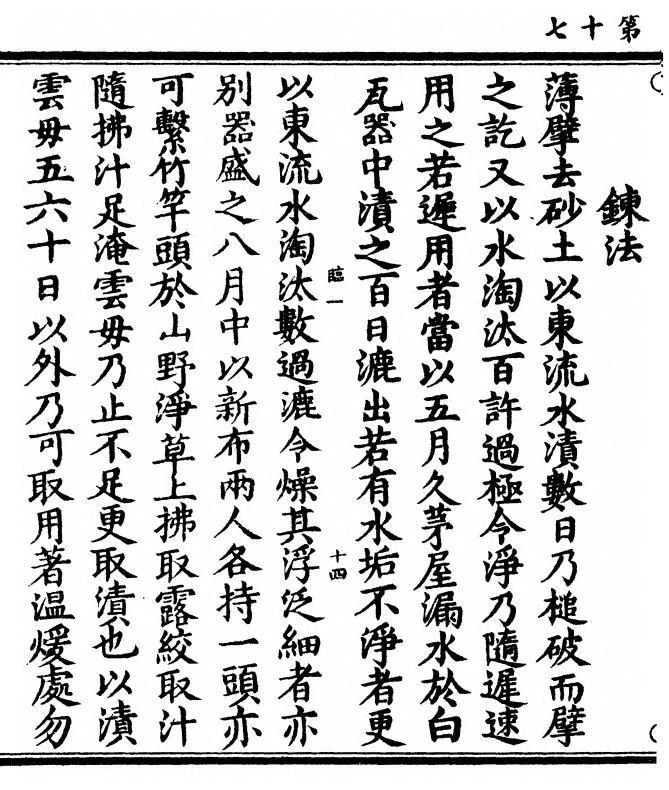 第十七
鍊法
薄擘去砂土以東流水漬數日乃槌破而擘
之訖又以水淘汰百許過極令淨乃隨遲速
用之若遲用者當以五月久茅屋漏水於白
瓦器中漬之百日漉出若有水垢不淨者更
臨一
十四
以東流水淘汰數過漉令燥其浮泛細者亦
別器盛之八月中以新布兩人各持一頭亦
可繫竹竿頭於山野淨草上拂取露絞取汁
隨拂汁足淹雲毋乃止不足更取漬也以漬
雲毋五六十日以外乃可取用著溫煖處勿